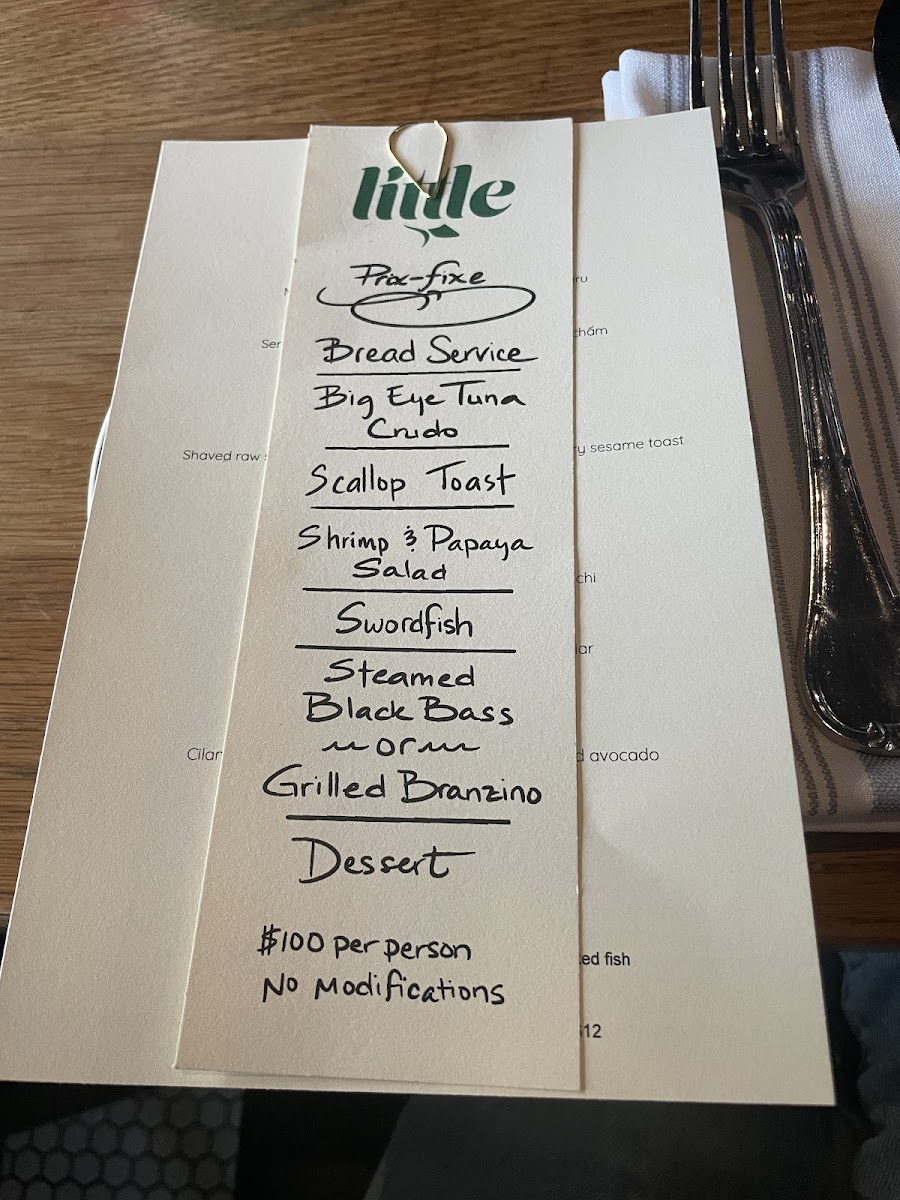 little
Prix-fixe
Bread Service
Big Eye Tuna
Crudo
Scallop Toast
Shrimp & Papaya
Salad
Swordfish
Steamed
Black Bass
or
Grilled Branzino
Dessert
$100 per person
No Modifications
chấm
Shaved raw
sesame toast
avocado
fish